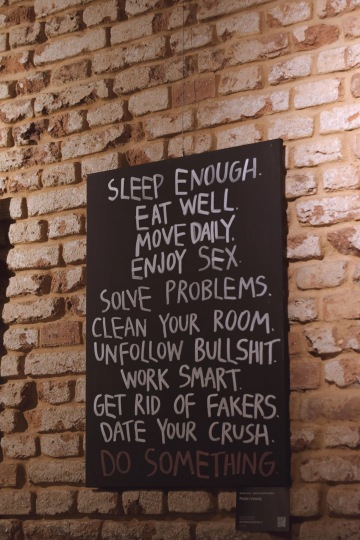 SLEEP ENOUGH.
EAT WELL.
MOVE DAILY.
ENJOY SEX.
SOLVE PROBLEMS.
CLEAN YOUR ROOM.
UNFOLLOW BULLSHIT.
WORK SMART.
GET RID OF FAKERS.
DATE YOUR CRUSH.
DO SOMETHING.